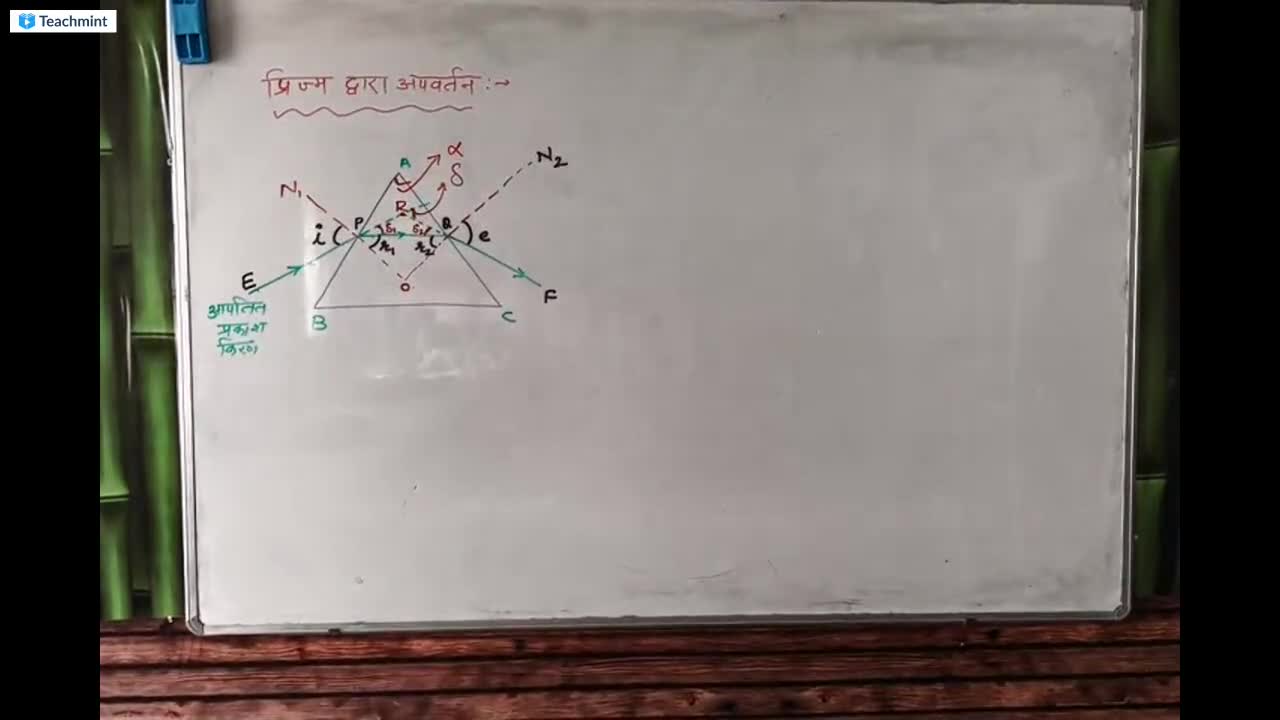 Teachmint
प्रिज्म द्वारा अपवर्तन :→
A
α
δ
N₂
N₁
R
P
Q
i
δ₁
δ₂
e
r₁
r₂
E
O
F
आपतित
प्रकाश
किरण
B
C